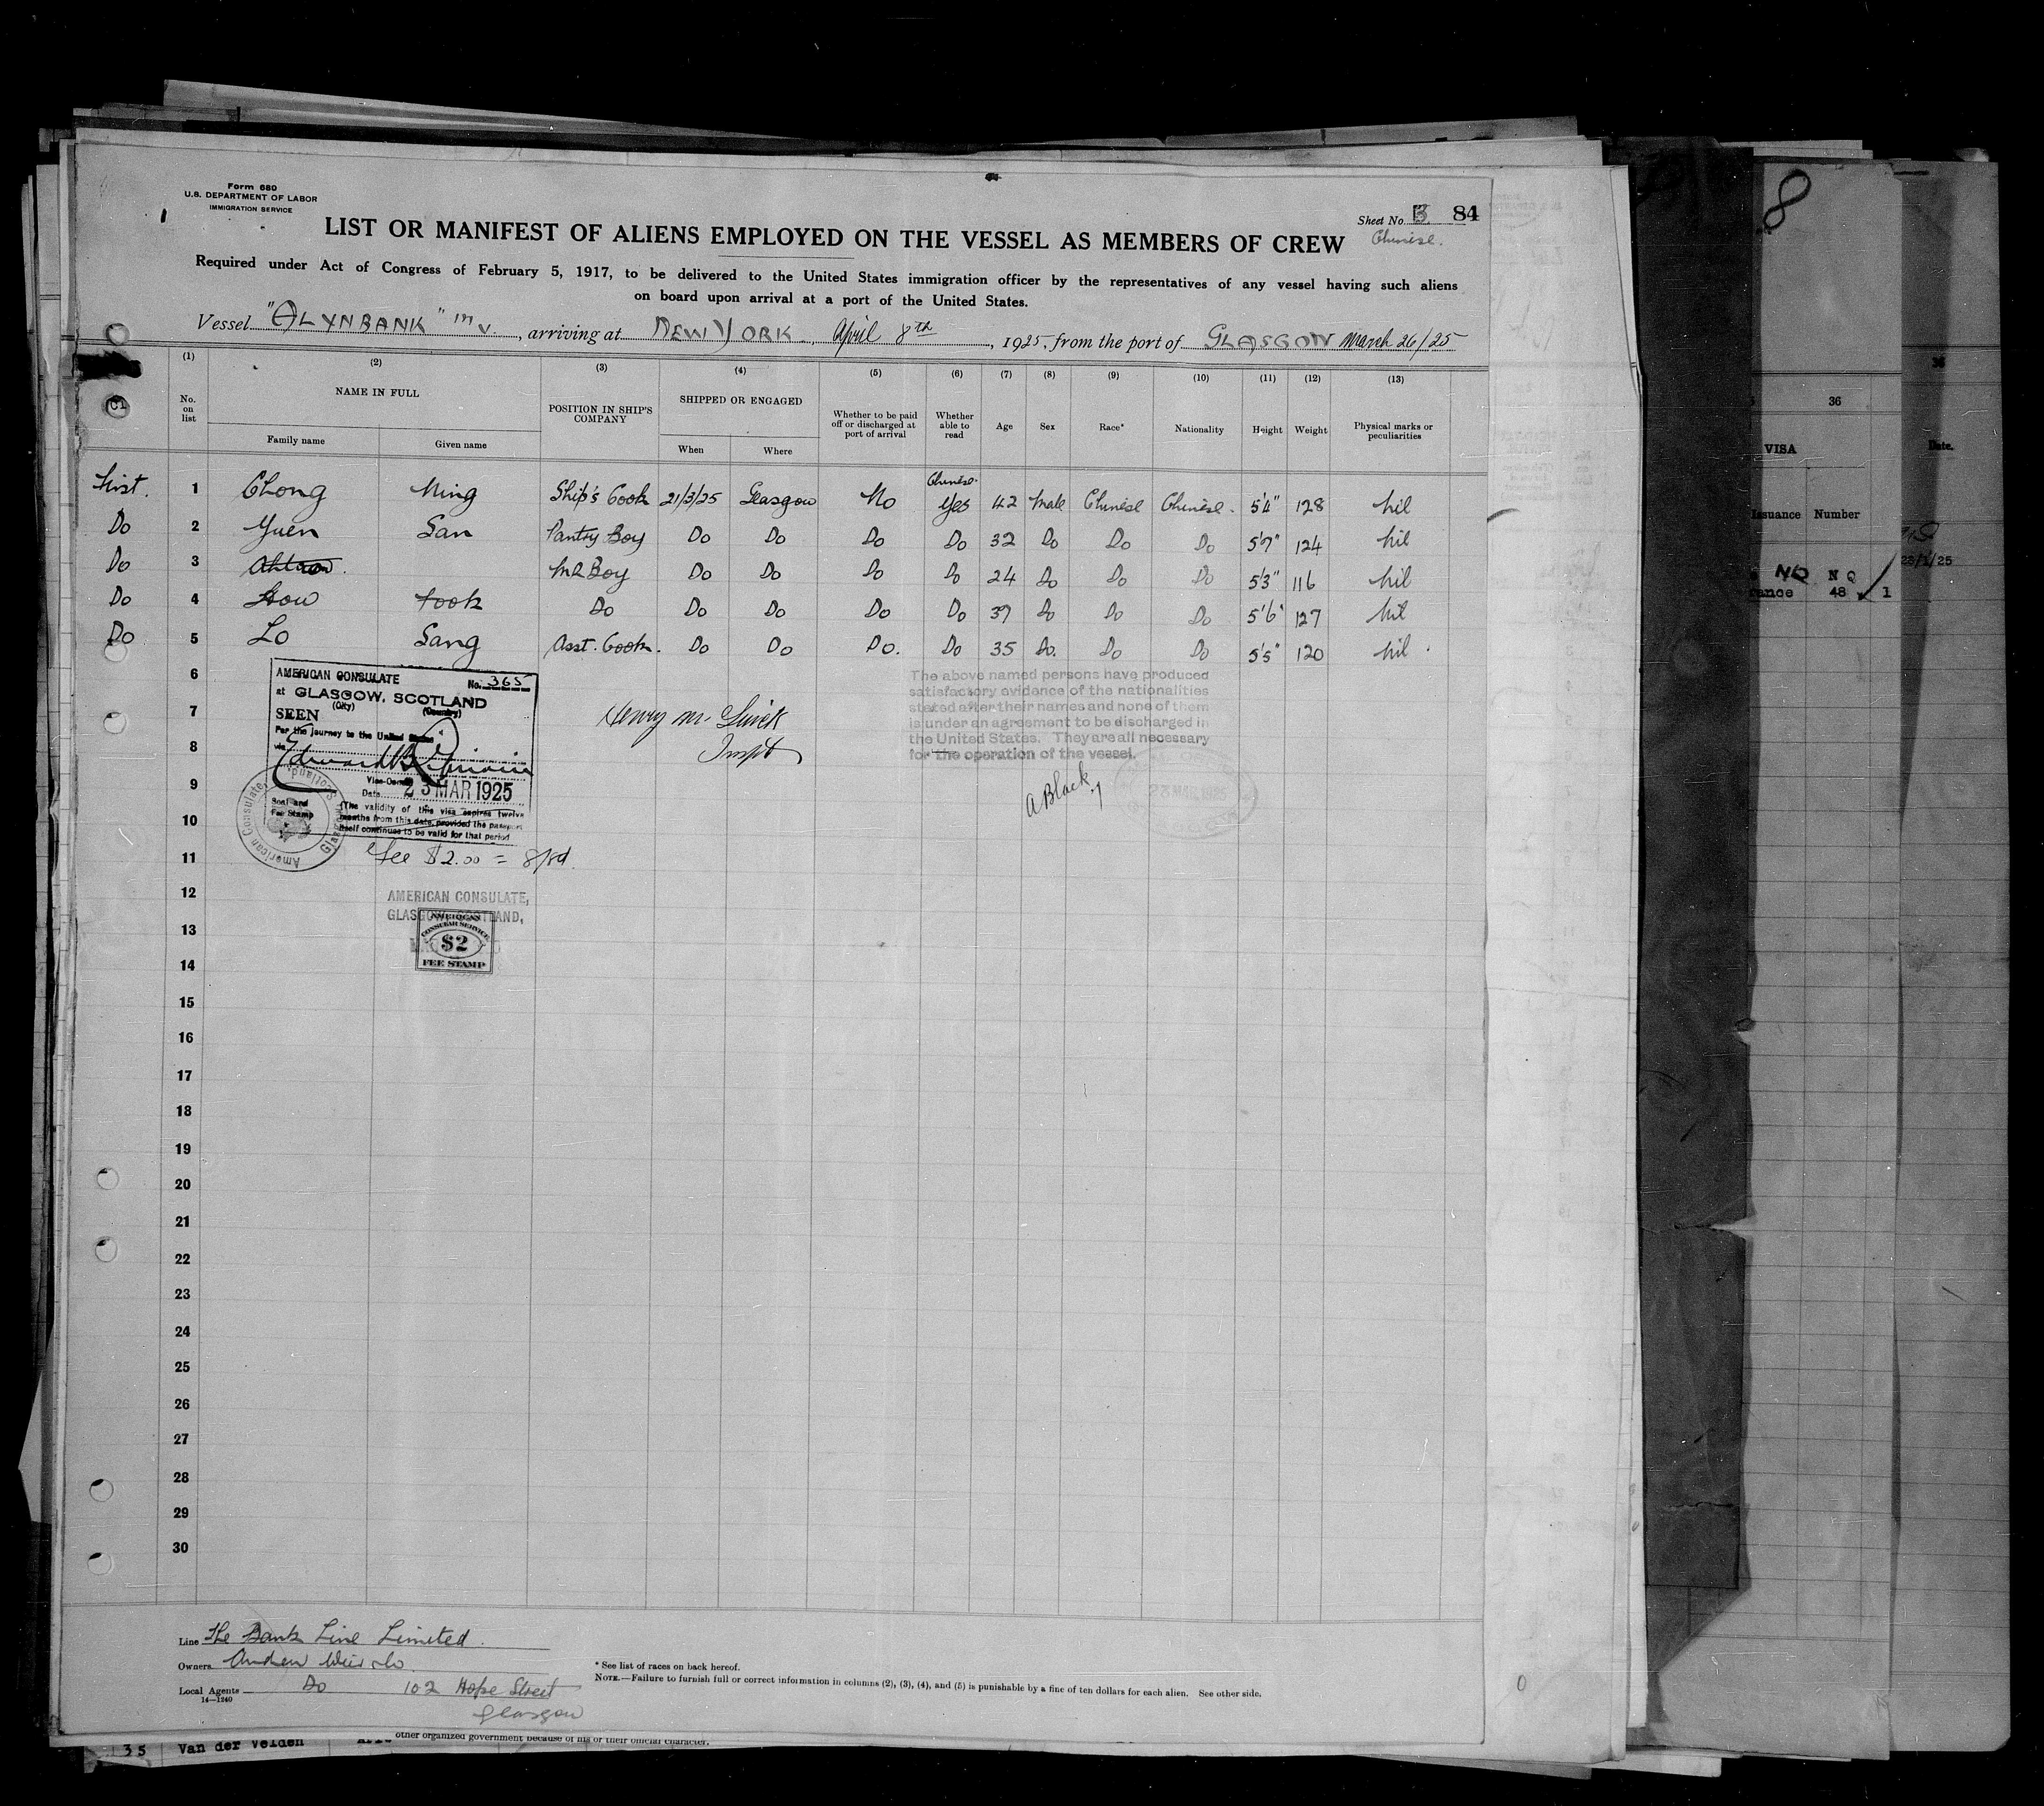 Form 680
U.S. DEPARTMENT OF LABOR
IMMIGRATION SERVICE
Sheet No. B 84
Chinese.
LIST OR MANIFEST OF ALIENS EMPLOYED ON THE VESSEL AS MEMBERS OF CREW
Required under Act of Congress of February 5, 1917, to be delivered to the United States immigration officer by the representatives of any vessel having such aliens
on board upon arrival at a port of the United States.
Vessel "ALYNBANK" m v, arriving at NEW YORK, April 8th, 1925, from the port of GLASGOW March 26/25
(1) (2) (3) (4) (5) (6) (7) (8) (9) (10) (11) (12) (13)
No. on list NAME IN FULL POSITION IN SHIP'S COMPANY SHIPPED OR ENGAGED Whether to be paid off or discharged at port of arrival Whether able to read Age Sex Race* Nationality Height Weight Physical marks or peculiarities
Family name Given name When Where
Chinese.
First. 1 Chong Ming Ship's Cook 21/3/25 Glasgow No Yes 42 Male Chinese Chinese. 5'4" 128 nil
Do 2 Yuen San Pantry Boy Do Do Do Do 32 Do Do Do 5'7" 124 nil
Do 3 MR Boy Do Do Do Do 24 Do Do Do 5'3" 116 nil
Do 4 How Fook Do Do Do Do Do 37 Do Do Do 5'6" 127 nil
Do 5 Lo Sang Asst. Cook. Do Do Do. Do 35 Do. Do Do 5'5" 120 nil.
6
7
8
9
10
11
12
13
14
15
16
17
18
19
20
21
22
23
24
25
26
27
28
29
30
AMERICAN CONSULATE No. 365
at GLASGOW, SCOTLAND
(City) (Country)
SEEN
For the journey to the United States
via
Vice-Consul
Date 23 MAR 1925
(The validity of this visa expires twelve
months from this date, provided the passport
itself continues to be valid for that period
Seal and
Fee Stamp
American Consulate Glasgow Scotland
Fee $2.00 = 8/8d.
AMERICAN CONSULATE,
GLASGOW, SCOTLAND,
AMERICAN
CONSULAR SERVICE
$2
FEE STAMP
Henry M.
Inspt
The above named persons have produced
satisfactory evidence of the nationalities
stated after their names and none of them
is under an agreement to be discharged in
the United States. They are all necessary
for the operation of the vessel.
A Black
23 MAR 1925
Line The Bank Line Limited.
Owners Andrew Weir & Co.
Local Agents Do 102 Hope Street
Glasgow
14—1240
* See list of races on back hereof.
NOTE.—Failure to furnish full or correct information in columns (2), (3), (4), and (5) is punishable by a fine of ten dollars for each alien. See other side.
35 Van der Velden
other organized government because of his or their official character.
8
36
VISA
Issuance Number
NO N Q
48 1
36
Date.
23/1/25
0